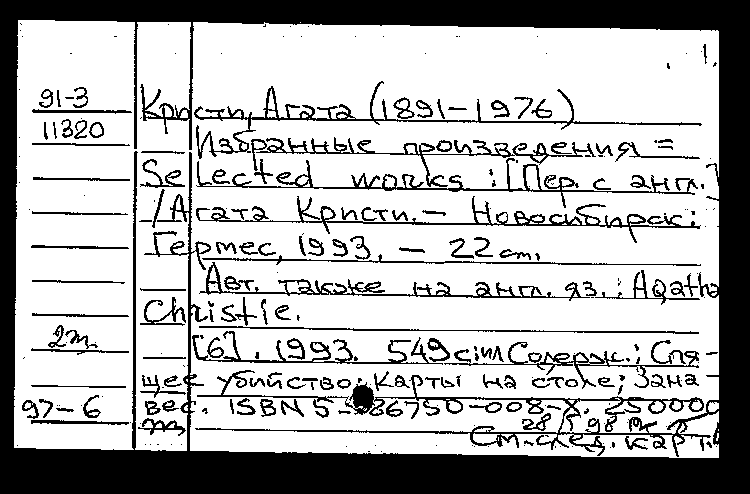 1.
91-3
Кристи, Агата (1891-1976)
11320
Избранные произведения =
Selected works : [Пер. с англ.]
/Агата Кристи. - Новосибирск:
Гермес, 1993. - 22 cm.
Авт. также на англ. яз.: Agatha
Christie.
2т.
[6]. 1993. 549 с: ил Содерж.: Спя-
щее убийство; Карты на столе; Зана-
97-6
вес. ISBN 5- 86750-008-X. 250000
28/5 98
См. след. карт.